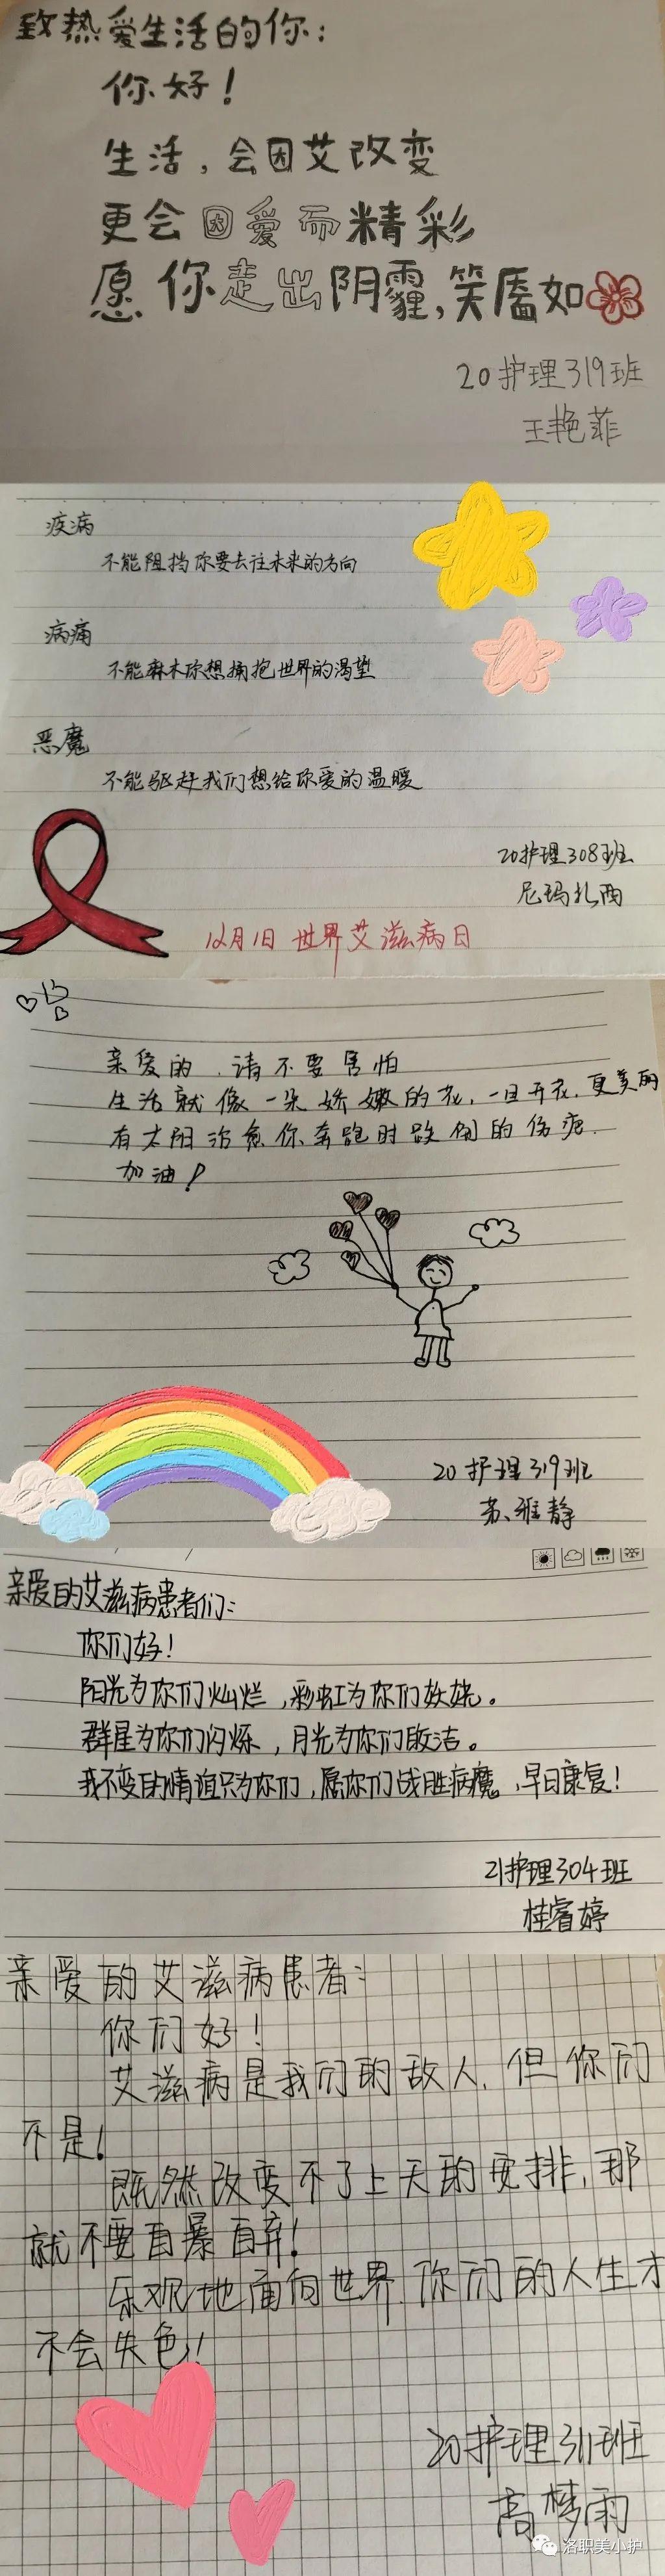 致热爱生活的你：
你好！
生活，会因艾改变
更会因爱而精彩
愿你走出阴霾，笑靥如
20护理319班
王艳菲
疾病
不能阻挡你要去往未来的方向
病痛
不能麻木你想拥抱世界的渴望
恶魔
不能驱赶我们想给你爱的温暖
20护理308班
尼玛扎西
12月1日 世界艾滋病日
亲爱的，请不要害怕
生活就像一朵娇嫩的花，一旦开花，更美丽
有太阳治愈你奔跑时跌倒的伤疤.
加油！
20护理319班
苏雅静
亲爱的艾滋病患者们：
你们好！
阳光为你们灿烂，彩虹为你们妖娆。
群星为你们闪烁，月光为你们皎洁。
我不变的情谊只为你们，愿你们战胜病魔，早日康复！
21护理304班
桂睿婷
亲爱的艾滋病患者：
你们好！
艾滋病是我们的敌人，但你们
不是！
既然改变不了上天的安排，那
就不要自暴自弃！
乐观地面向世界，你们的人生才
不会失色！
20护理311班
高梦雨
洛职美小护